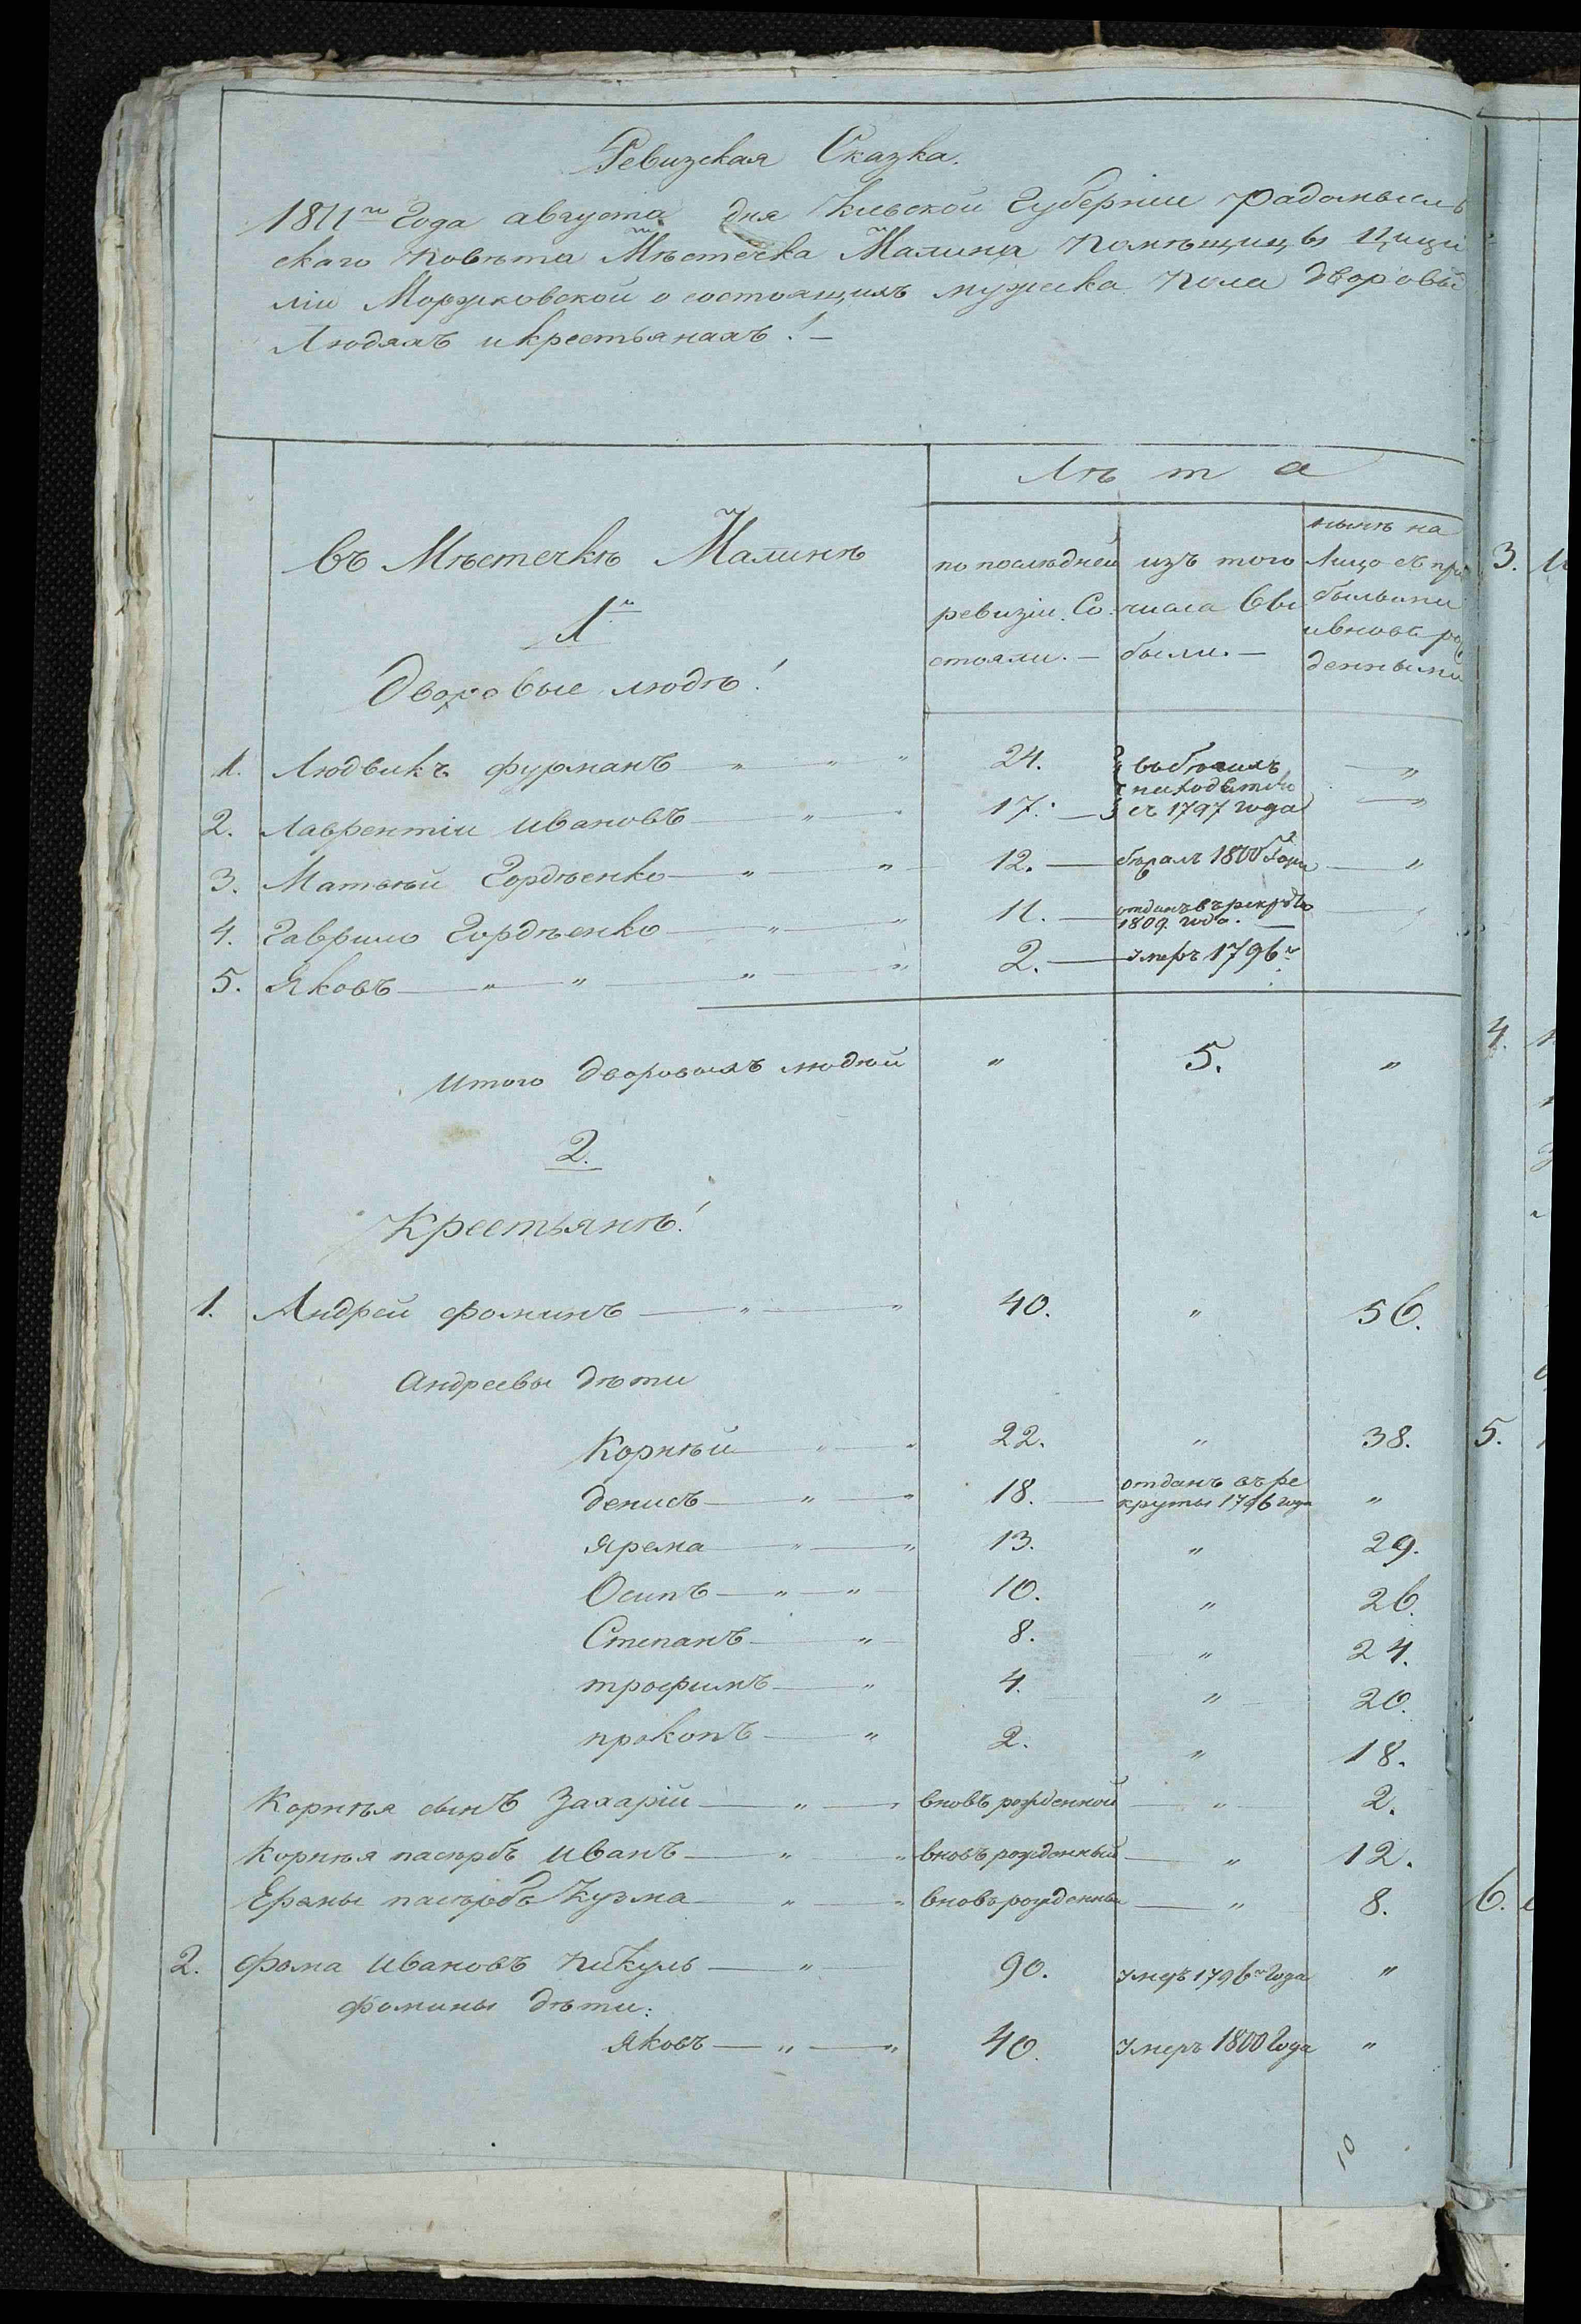 Ревизская Сказка.
1811го Года августа дня Киевской Губернии Радомысль
скаго Повѣта Мѣстечка Малина Помѣщицы Цици
лiи Моржковской о состоящихъ мужеска Пола дворовы
Людяхъ и крестьянахъ!
Лѣта
въ Мѣстечкѣ Малинѣ
1е
Дворовые людѣ!
по послѣдней ревизiи Со стояли.
изъ того числа вы были.
нынѣ на Лицо съ при былыми и вновь ро денными
1. Людвикъ фурманъ " " " 24. въ бѣгахъ находится "
2. Лаврентiи Ивановъ " " 17. съ 1797 года "
3. Матьвѣй Гордѣенко " " 12. 1800 Года "
4. Гаврило Гордѣенко " " 11. отданъ въ рекруты 1809 года. "
5. Яковъ " " " " 2. умеръ 1796го
Итого дворовыхъ людѣй " 5. "
2.
Крестьянѣ!
1. Андрей Фоминъ " " 40. " 56.
Андреевы дѣти
Корнѣй " " 22. " 38.
денисъ " " 18. отданъ въ ре круты 1796 года "
Ярема " " 13. " 29.
Осипъ " " 10. " 26.
Степанъ " 8. " 24.
трофимъ " 4. " 20.
прокопъ " 2. " 18.
Корнѣя сынъ Захарiй " " вновъ рожденной " 2.
Корнѣя пасѣрбъ Иванъ " " вновъ рожденный " 12.
пасѣрбъ Кузма " " вновъ рожденны " 8.
2. Фома Ивановъ Пикуль " 90. умеръ 1796го Года "
Фомины дѣти:
Яковъ " " 40. умеръ 1800 Года "
10
3.
4.
5.
6.